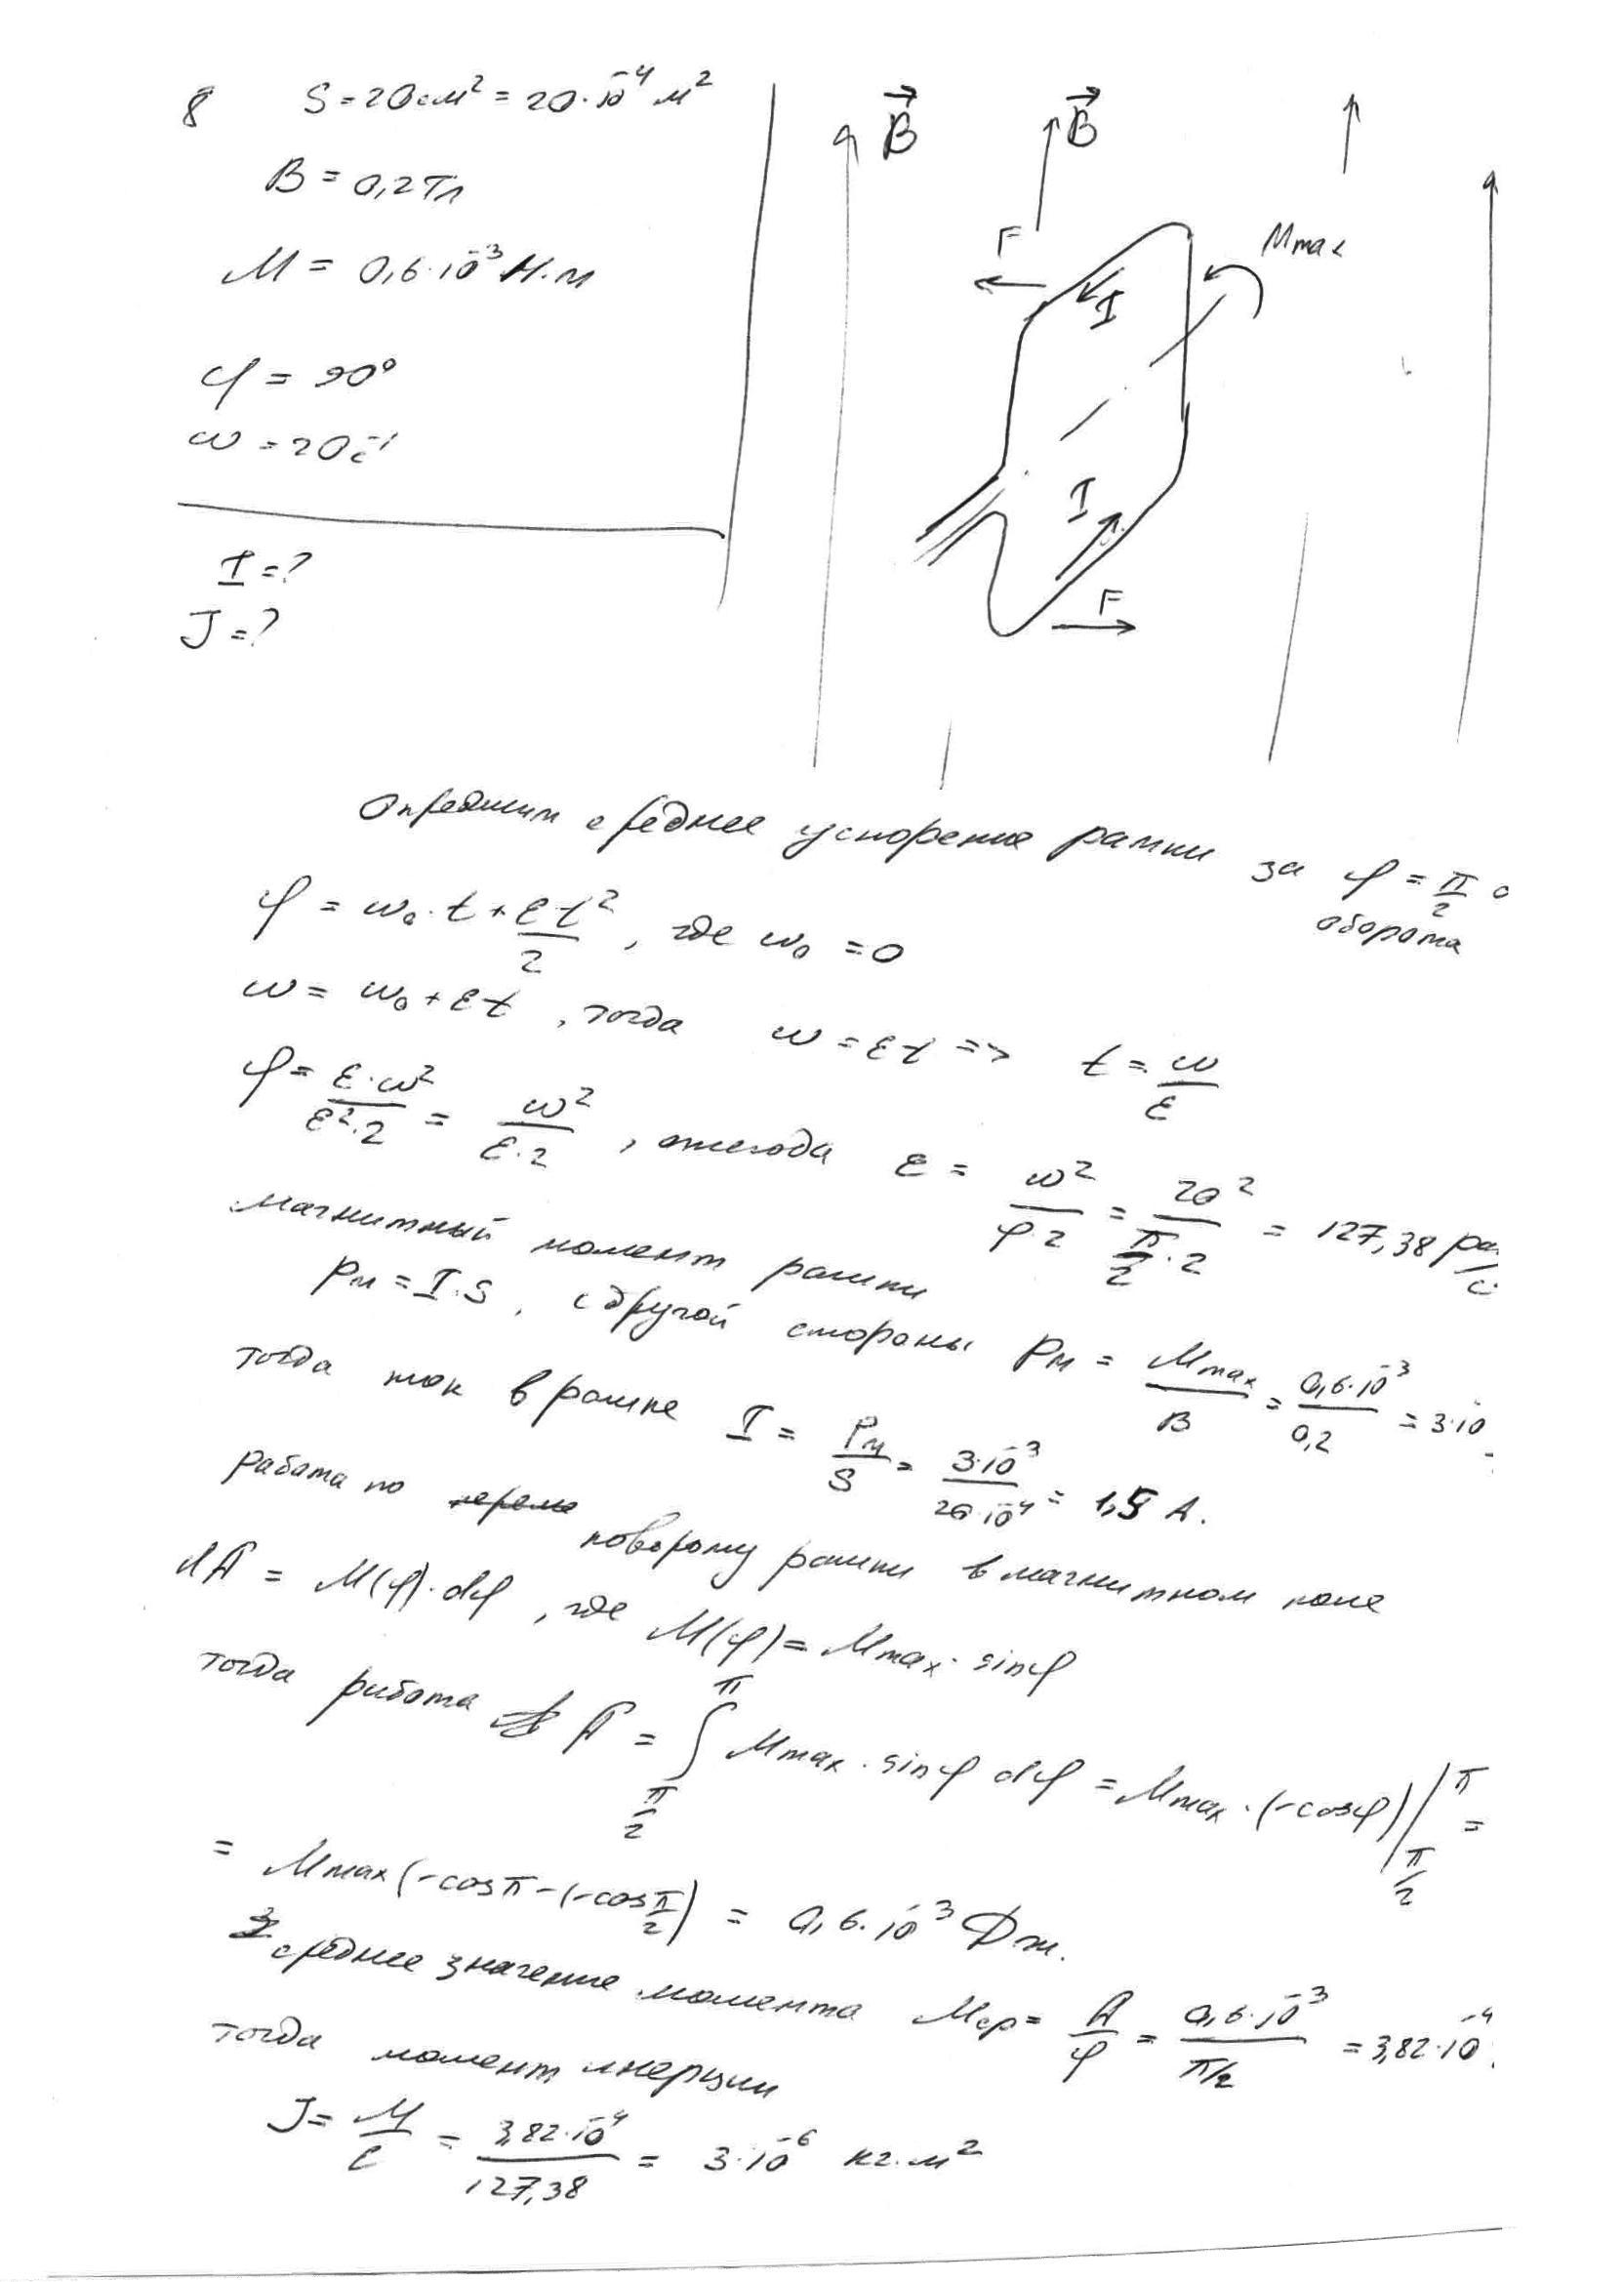 8 S = 20 см² = 20·10⁻⁴ м²
B = 0,2 Тл
M = 0,6·10⁻³ Н·м
φ = 90°
ω = 20 с⁻¹
I = ?
J = ?
B
B
F
I
Mmax
I
F
Определим среднее ускорение рамки за φ = π/2
оборота
φ = ω₀·t + εt²/2, где ω₀ = 0
ω = ω₀ + εt, тогда ω = εt => t = ω/ε
φ = ε·ω²/ε²·2 = ω²/ε·2, откуда ε = ω²/φ·2 = 20²/(π/2·2) = 127,38 ра
магнитный момент рамки
Pм = I·S, с другой стороны Pм = Mmax/B = 0,6·10⁻³/0,2 = 3·10⁻
тогда ток в рамке I = Pм/S = 3·10⁻³/20·10⁻⁴ = 1,5 А.
работа по повороту рамки в магнитном поле
dA = M(φ)·dφ, где M(φ) = Mmax·sinφ
тогда работа A = ∫ π/2 π Mmax·sinφ dφ = Mmax·(-cosφ)| π/2 π =
= Mmax(-cosπ-(-cos π/2) = 0,6·10⁻³ Дж.
среднее значение момента Mср = A/φ = 0,6·10⁻³/π/2 = 3,82·10⁻⁴
тогда момент инерции
J = M/ε = 3,82·10⁻⁴/127,38 = 3·10⁻⁶ кг·м²